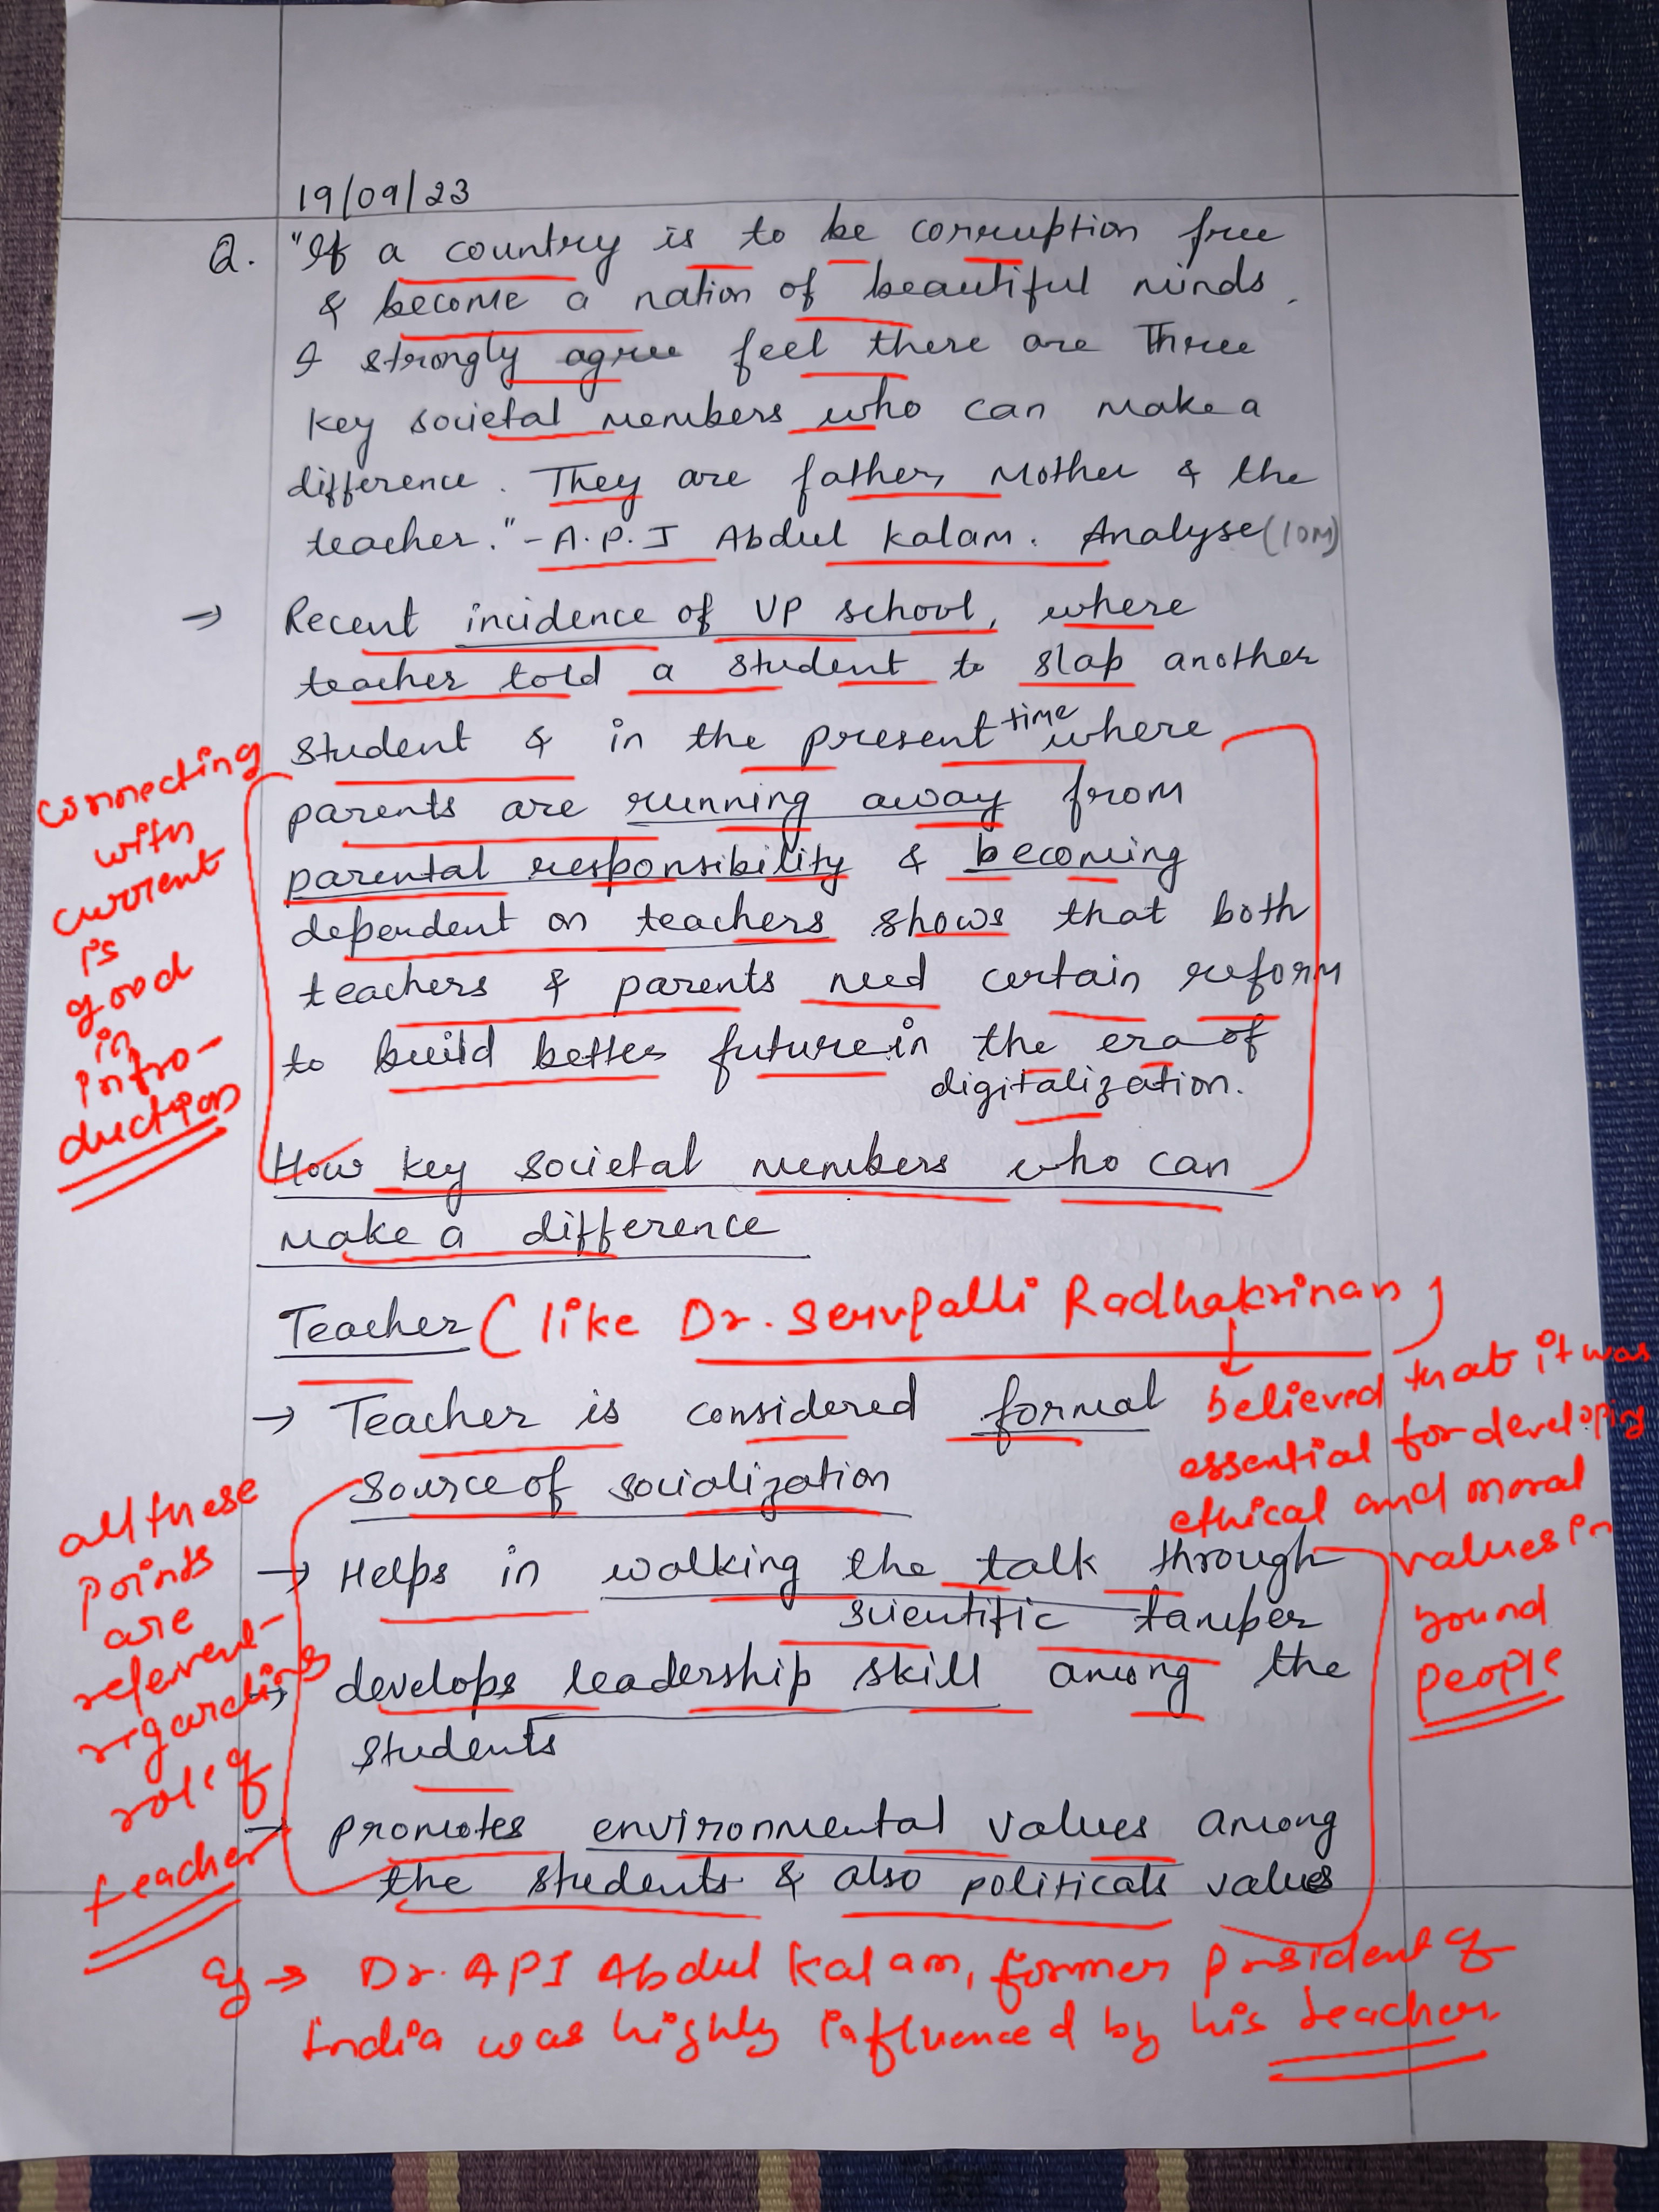 19/09/23
Q. "If a country is to be corruption free
& become a nation of beautiful minds,
I strongly agree feel there are Three
key societal members who can make a
difference. They are father, Mother & the
teacher." - A.P.J Abdul Kalam. Analyse (10M)
→ Recent incidence of UP school, where
teacher told a student to slap another
student & in the present time where
parents are running away from
parental responsibility & becoming
dependent on teachers shows that both
teachers & parents need certain reform
to build better future in the era of
digitalization.
connecting
with
current
is
good
in
intro-
duction
How key societal members who can
make a difference
Teacher (like Dr. Servpalli Radhakrinan)
↓
believed that it was
essential for developing
ethical and moral
values in
young
people
→ Teacher is considered formal
source of socialization
→ Helps in walking the talk through
scientific tamper
→ develops leadership skill among the
students
→ promotes environmental values among
the students & also politicals values
all these
points
are
relevent
regarding
role of
teacher
Eg → Dr. APJ Abdul Kalam, former president of
India was highly influenced by his teacher.